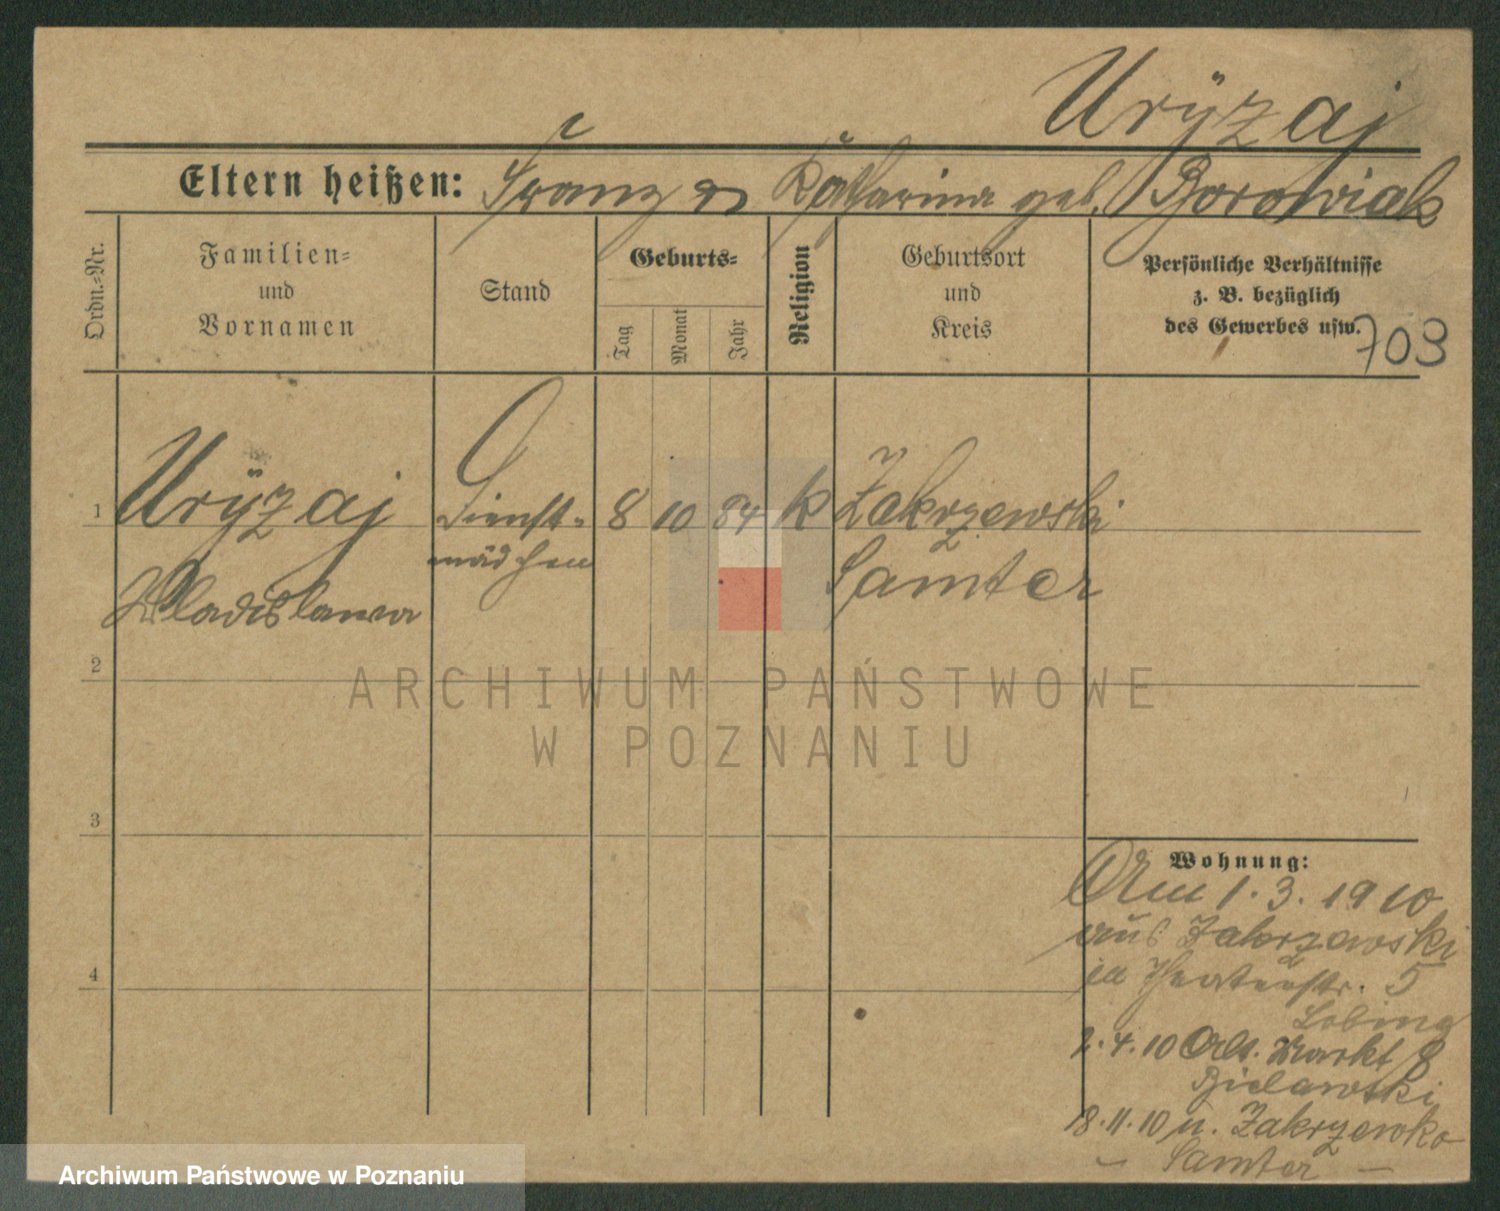 Uryzaj
Eltern heißen: Franz u Katharina geb. Borowiak
Ordn.-Nr.
Familien-
und
Vornamen
Stand
Geburts-
Tag
Monat
Jahr
Religion
Geburtsort
und
Kreis
Persönliche Verhältnisse
z. B. bezüglich
des Gewerbes usw.
703
1
Uryzaj
Wladislawa
Dienst-
mädchen
8
10
84
k
Zakrzewski
Samter
2
3
4
Wohnung:
Am 1.3.1910
aus Zakrzewski
in 5
2.4.10 Alt. Markt 8
Bielawski
18.11.10 n. Zakrzewko
– Samter –
ARCHIWUM PAŃSTWOWE
W POZNANIU
Archiwum Państwowe w Poznaniu